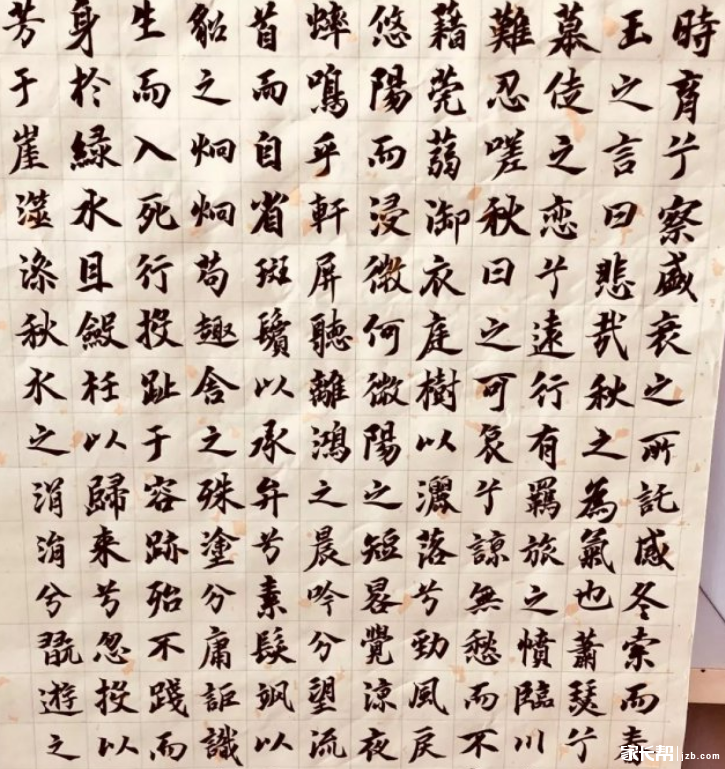 時育兮察盛衰之所託感冬索而春
玉之言曰悲哉秋之為氣也蕭瑟兮
慕徒之恋兮遠行有羈旅之憤臨川
難忍嗟秋日之可哀兮諒無愁而不
藉莞蒻御衣庭樹以灑落兮勁風戾
悠陽而浸微何微陽之短晷覺涼夜
蟀鳴乎軒屏聽離鴻之晨吟兮望流
首而自省斑鬢以承弁兮素髮颯以
貂之炯炯苟趣舍之殊塗兮庸詎識
生而入死行投趾于容跡殆不踐而
身於綠水且斂衽以歸來兮忽投以
芳于崖澨澡秋水之涓涓兮翫遊之
家长帮 jzb.com